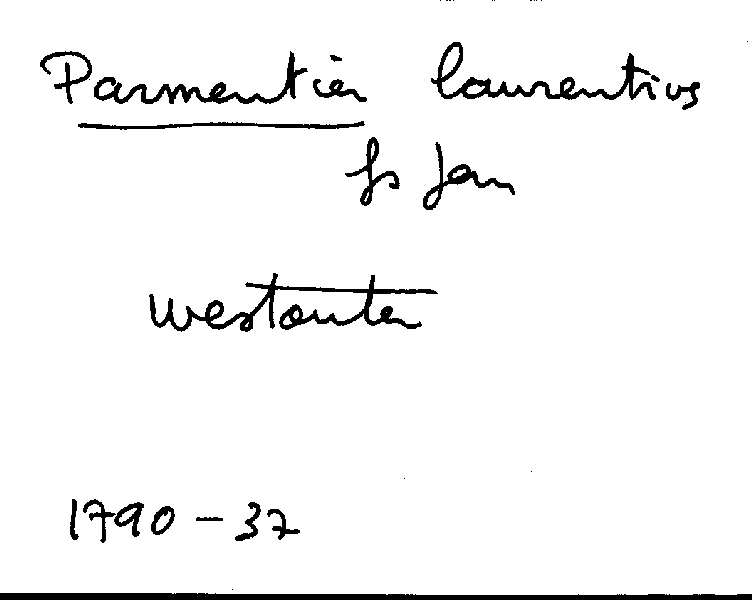 Parmentier Laurentius
fs Jan
Westouter
1790 - 37